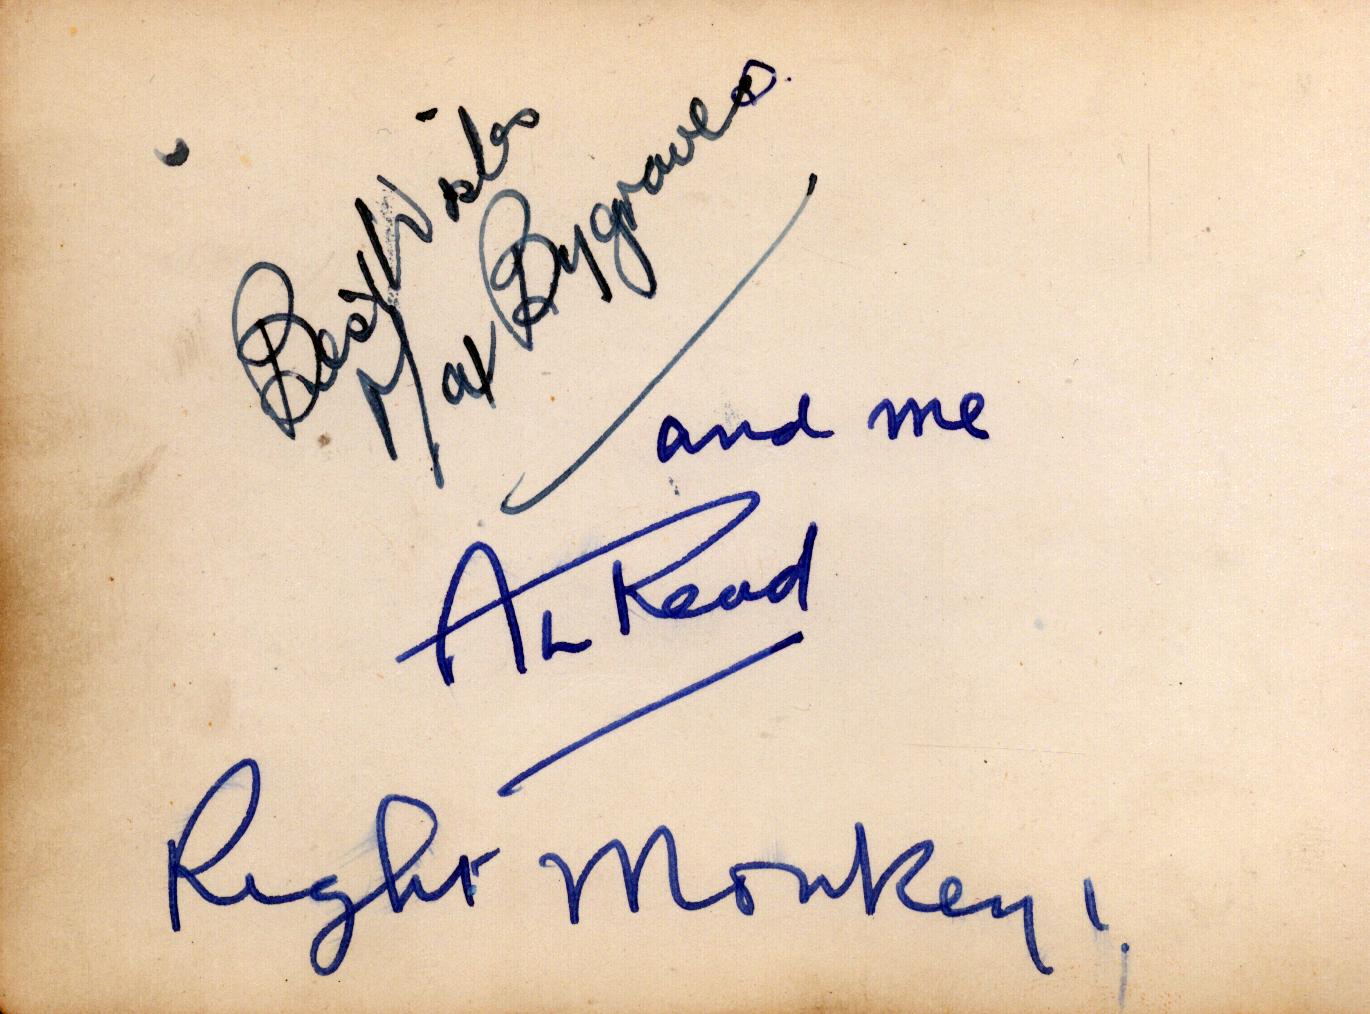 Best Wishes
Max Bygraves
and me
AL Read
Right Monkey!